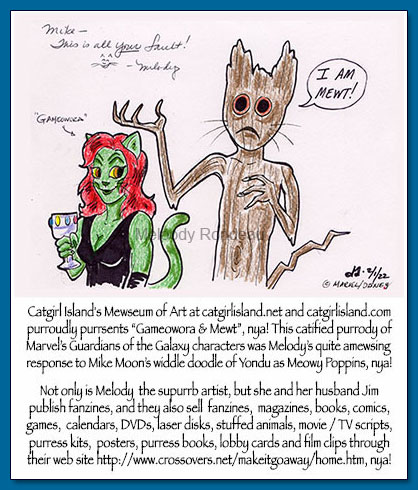 Mike –
This is all your fault!
– Melody
"GAMEOWORA"
I AM
MEWT!
Melody Rondeau
2/1/22
© MARVEL/DISNEY
Catgirl Island's Mewseum of Art at catgirlisland.net and catgirlisland.com
purroudly purrsents "Gameowora & Mewt", nya! This catified purrody of
Marvel's Guardians of the Galaxy characters was Melody's quite amewsing
response to Mike Moon's widdle doodle of Yondu as Meowy Poppins, nya!
Not only is Melody the supurrb artist, but she and her husband Jim
publish fanzines, and they also sell fanzines, magazines, books, comics,
games, calendars, DVDs, laser disks, stuffed animals, movie / TV scripts,
purress kits, posters, purress books, lobby cards and film clips through
their web site http://www.crossovers.net/makeitgoaway/home.htm, nya!